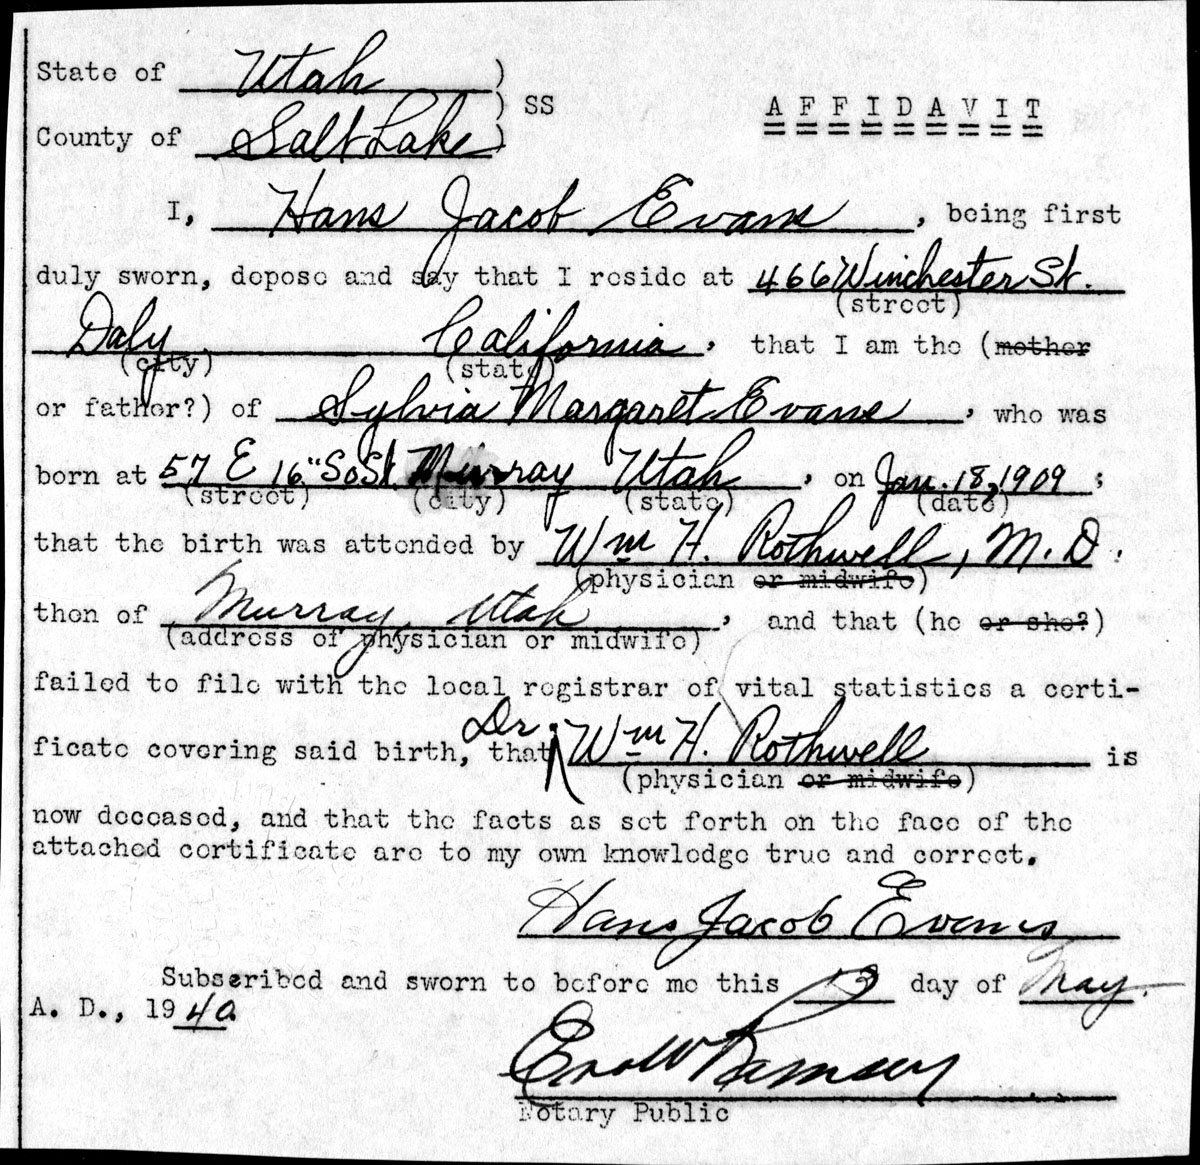 State of Utah )
) SS
AFFIDAVIT
County of Salt Lake )
I, Hans Jacob Evans, being first
duly sworn, depose and say that I reside at 466 Winchester St.
(street)
Daly California, that I am the (mother
(city) (state)
or father?) of Sylvia Margaret Evans, who was
born at 57 E 16" So St. Murray Utah, on Jan. 18, 1909;
(street) (city) (state) (date)
that the birth was attended by Wm H. Rothwell, M.D.
(physician or midwife)
then of Murray, Utah, and that (he or she?)
(address of physician or midwife)
failed to file with the local registrar of vital statistics a certi-
ficate covering said birth, that Dr. Wm H. Rothwell is
(physician or midwife)
now deceased, and that the facts as set forth on the face of the
attached certificate are to my own knowledge true and correct.
Hans Jacob Evans
Subscribed and sworn to before me this 13 day of May.
A. D., 1940.
Ramsey
Notary Public